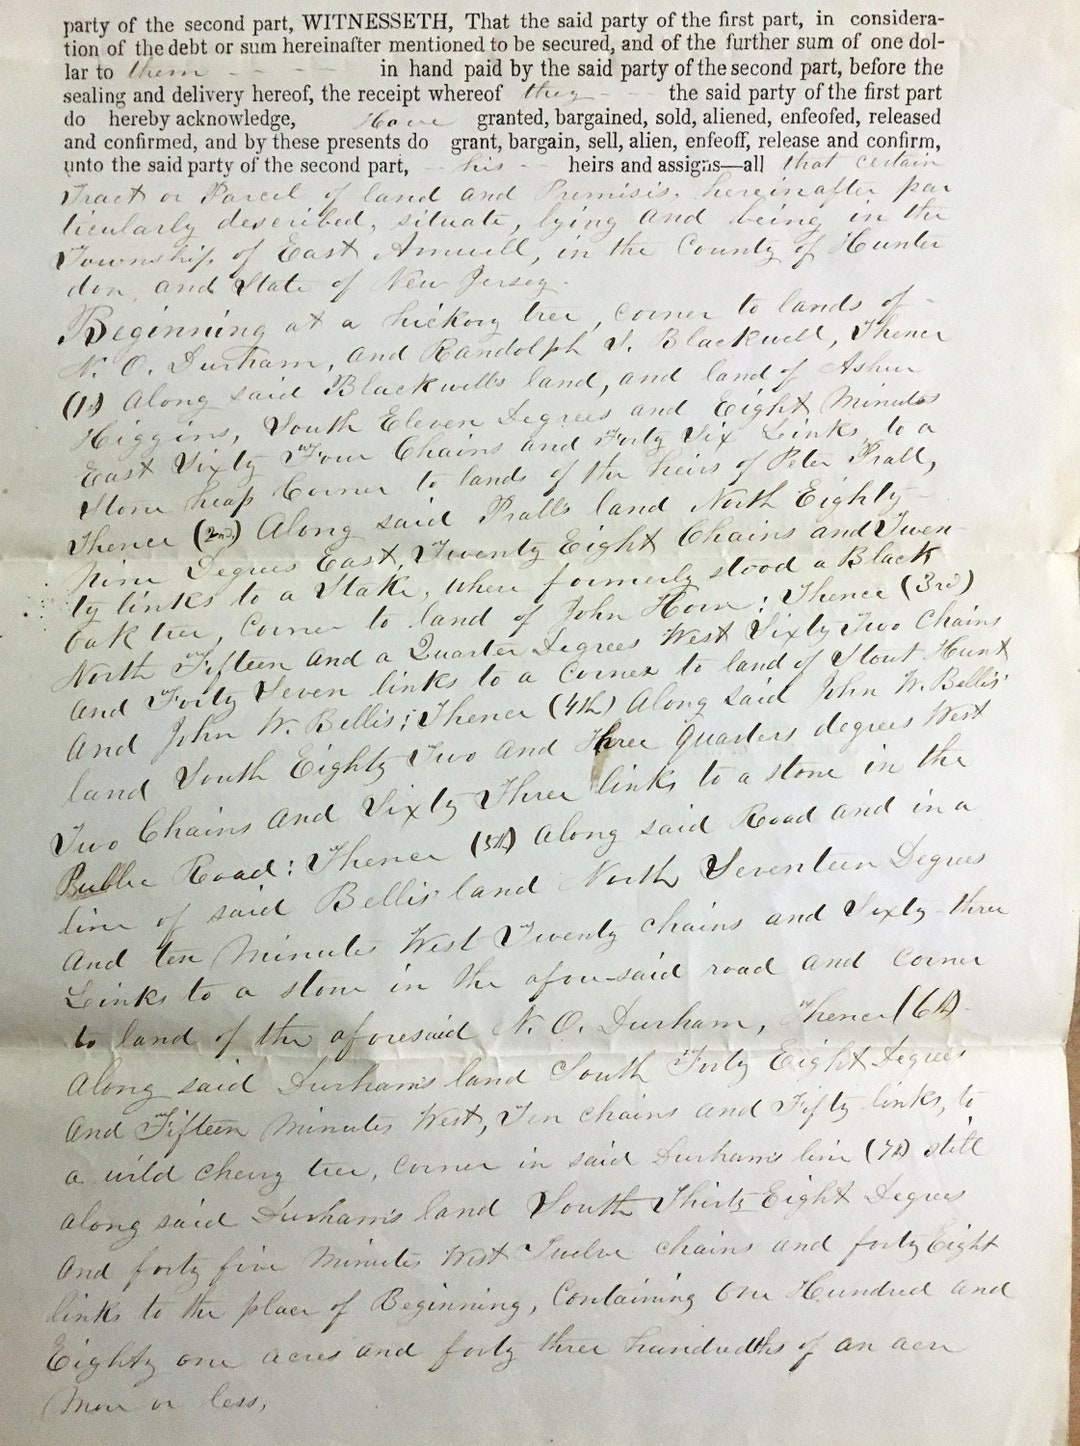 party of the second part, WITNESSETH, That the said party of the first part, in considera-
tion of the debt or sum hereinafter mentioned to be secured, and of the further sum of one dol-
lar to them - - - in hand paid by the said party of the second part, before the
sealing and delivery hereof, the receipt whereof they - - the said party of the first part
do hereby acknowledge, Have granted, bargained, sold, aliened, enfeofed, released
and confirmed, and by these presents do grant, bargain, sell, alien, enfeoff, release and confirm,
unto the said party of the second part, - his - - heirs and assigns—all that certain
Tract or Parcel of land and Premisis, hereinafter par
ticularly described, situate, lying and being in the
Township of East Amwell, in the County of Hunter
don, and State of New Jersey.
Beginning at a hickory tree, corner to lands of -
N. O. Durham, and Randolph S. Blackwell, Thence
(1st) Along said Blackwells land, and land of Asher
Higgins, South Eleven Degrees and Eight Minutes
East Sixty Four Chains and Forty Six Links, to a
Stone heap Corner to lands of the heirs of Peter Prall,
Thence (2nd) Along said Pralls land North Eighty
Nine Degrees East, Twenty Eight Chains and Twen-
ty links to a Stake, where formerly stood a Black
Oak tree, Corner to land of John Horn: Thence (3rd)
North Fifteen and a Quarter Degrees West Sixty Two Chains
And Forty Seven links to a Corner to land of Stout Hunt
And John W. Bellis; Thence (4th) Along said John W. Bellis'
land South Eighty Two and Three Quarters degrees West
Two Chains And Sixty Three links to a stone in the
Public Road: Thence (5th) Along said Road and in a
line of said Bellis' land North Seventeen Degrees
And ten Minutes West Twenty chains and Sixty-three
Links to a stone in the afore-said road and corner
to land of the aforesaid N. O. Durham, Thence (6th)-
Along said Durham's land South Forty Eight Degrees
And Fifteen Minutes West, Ten chains and Fifty links, to
a wild cherry tree, corner in said Durham's line (7th) still
along said Durham's land South Thirty Eight Degrees
And forty five Minutes West Twelve chains and forty Eight
links to the place of Beginning, Containing One Hundred and
Eighty one acres and forty three hundredths of an acre
More or less,